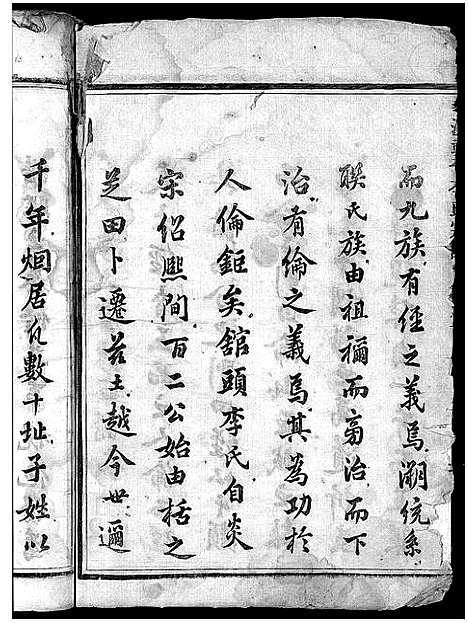 而九族有經之義焉溯統系
聯氏族由祖禰而旁治而下
治有倫之義焉其為功於
人倫鉅矣舘頭李氏自炎
宋紹熙間百二公始由括之
芝田卜遷兹土越今世邇
千年烟居化數十址子姓以